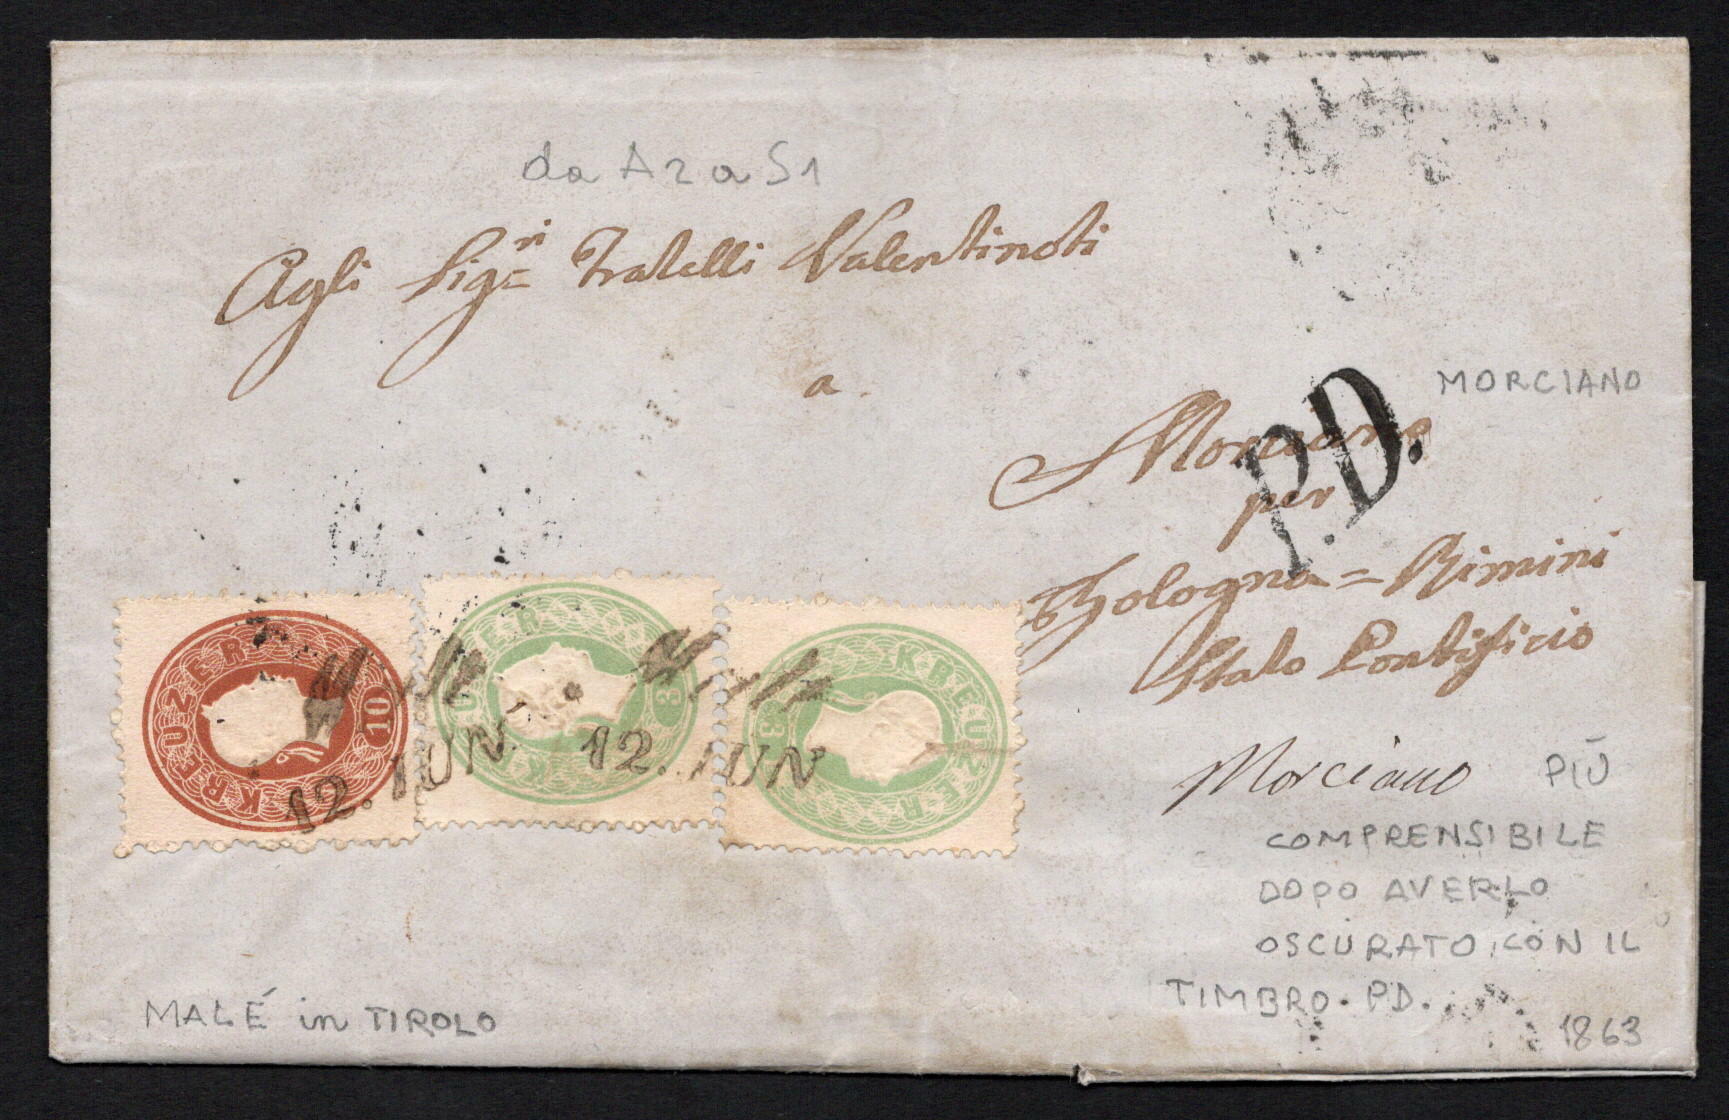 da A2 a S1
Agli Sig.ri Fratelli Valentinoti
a
MORCIANO
Morciano
P.D.
per
Bologna = Rimini
Stato Pontificio
KREUZER 10
KREUZER 3
KREUZER 3
Malè
12. JUN
Malè
12. JUN
Morciano PIÙ
COMPRENSIBILE
DOPO AVERLO
OSCURATO CON IL
TIMBRO. PD.
MALÉ in TIROLO
1863